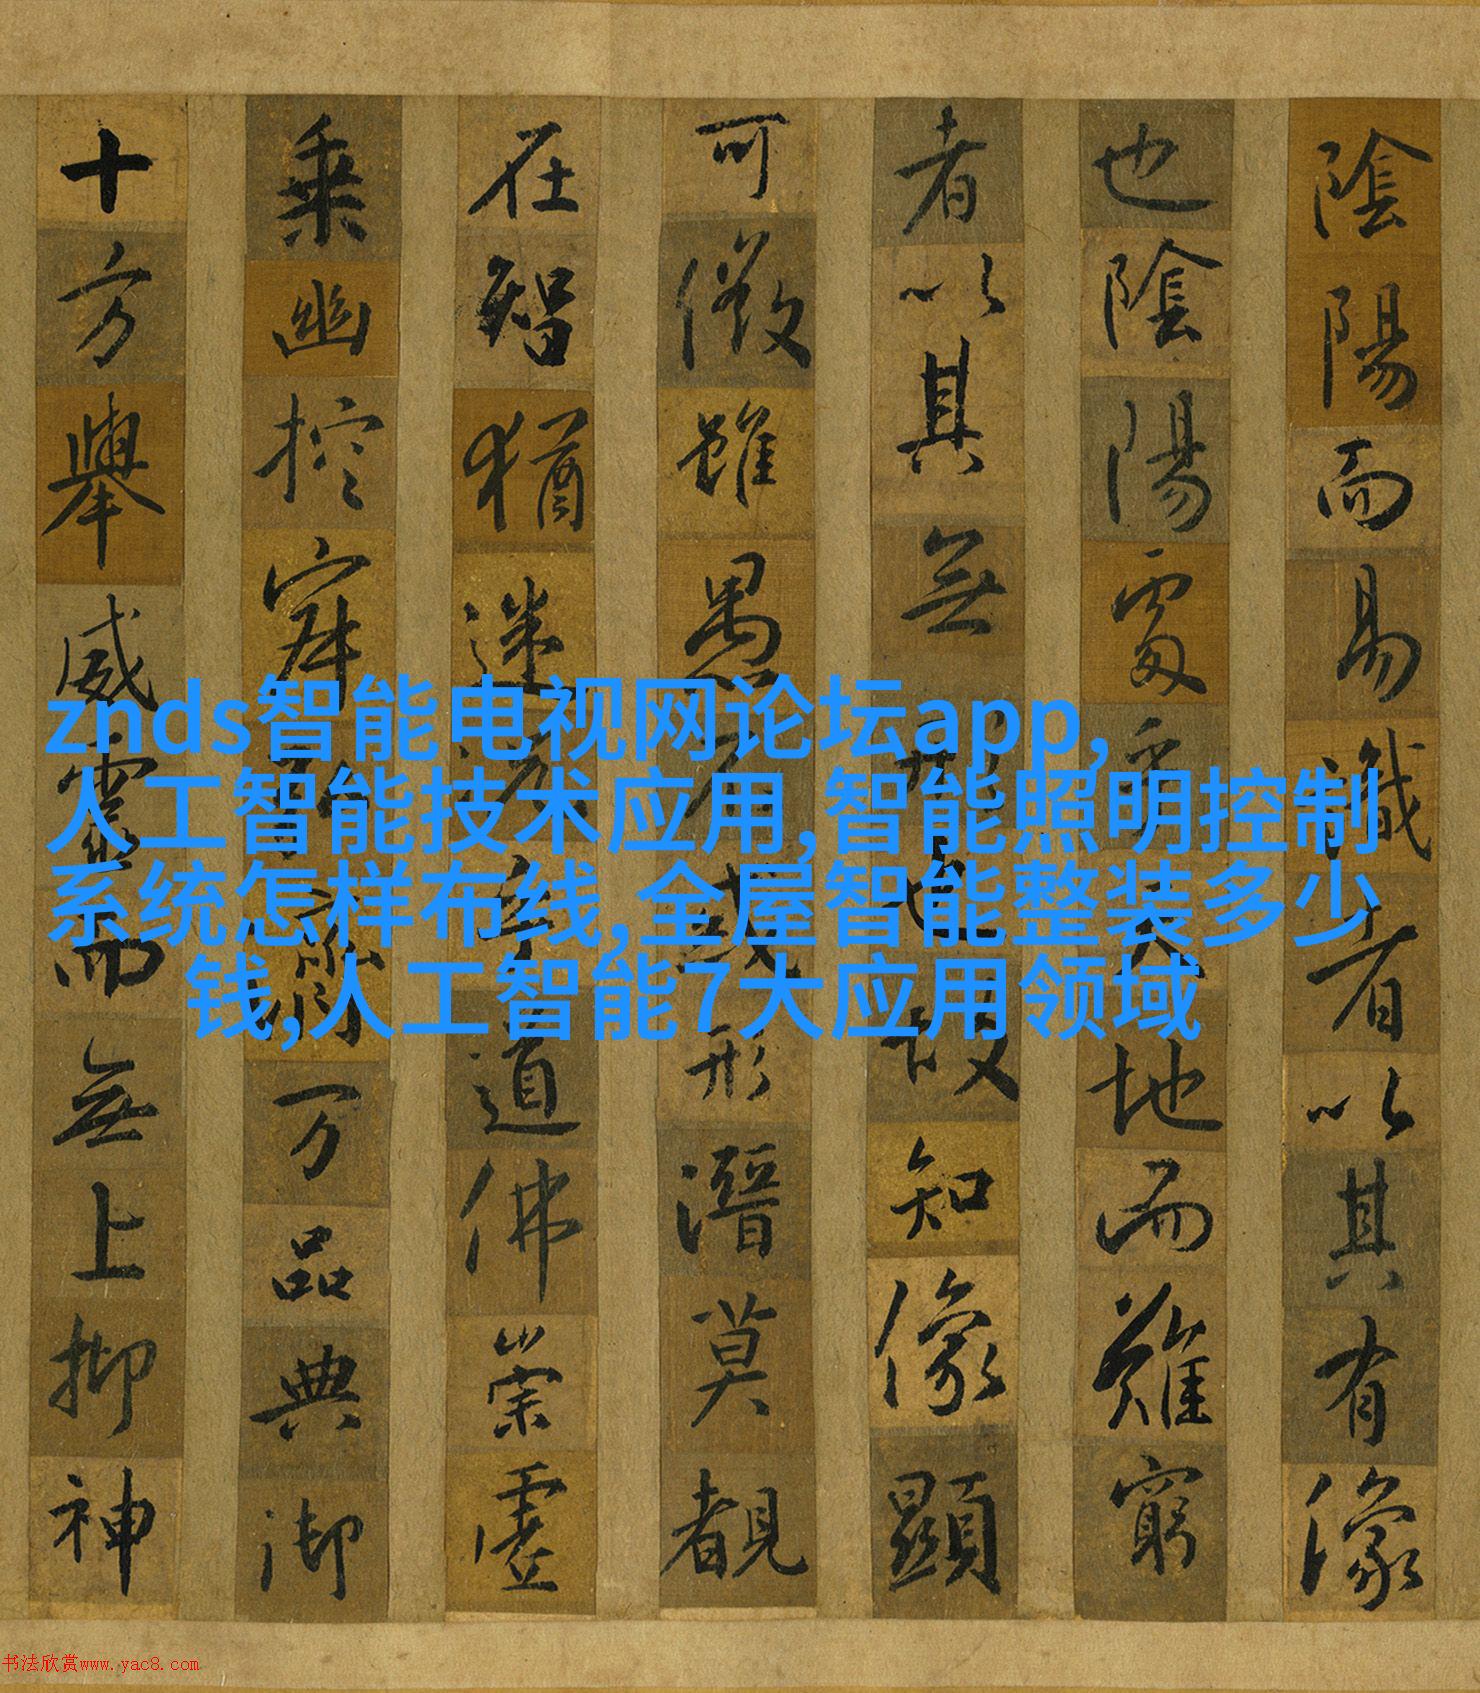 陰陽而易識者以其有像
也陰陽處乎天地而難窮
者以其無形也故知像顯
可徵雖愚不惑形潛莫覩
在智猶迷況乎道佛崇虛
乘幽控寂弘濟万品典御
十方舉威靈而無上抑神
znds智能电视网论坛app,
人工智能技术应用,智能照明控制
系统怎样布线,全屋智能整装多少
钱,人工智能7大应用领域
书法欣赏www.yac8.com